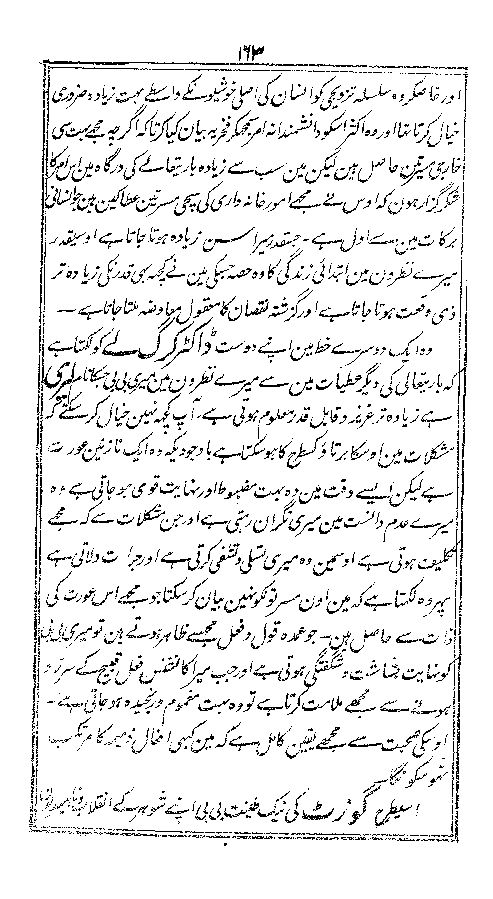 ۱۶۳
اور خاصکر وہ سلسلہ تزویجی کو انسان کی اصلی خوشیونکے واسطے بہت زیادہ ضروری
خیال کرتا تھا اور وہ اکثر اسکو دانشمندانہ امر سمجھکر فخریہ بیان کیا کرتا کہ اگرچہ مجھے بہت سی
خارجی مسرتین حاصل ہین لیکن مین سب سے زیادہ باریتعالے کی درگاہ مین اس امر کا
شکر گزار ہون کہ اوس نے مجھے امور خانہ داری کی سچی مسرتین عطا کین ہین جو انسانی
برکات مین سے اول ہے - جسقدر میرا سن زیادہ ہوتا جاتا ہے اوسیقدر
میرے نظرون مین ابتدائی زندگی کا وہ حصہ جسکی مین نے کچھ بھی قدر نکی زیادہ تر
ذی وقعت ہوتا جاتا ہے اور گزشتہ نقصان کا معقول معاوضہ ملتا جاتا ہے -
وہ ایک دوسرے خط مین اپنے دوست ڈاکٹر کرگ لے کو لکھتا ہے
کہ باریتعالی کی دیگر عطیات مین سے میرے نظرون مین میری بی بی جسکا نام لری
ہے زیادہ تر عزیز و قابل قدر معلوم ہوتی ہے - آپ کچھ نہین خیال کر سکتے کہ
مشکلات مین اوسکا برتاؤ کسطرح کا ہو سکتا ہے باوجودیکہ وہ ایک نازنین عورت
ہے لیکن ایسے وقت مین وہ بہت مضبوط اور نہایت قوی ہو جاتی ہے وہ
میرے عدم دانست مین میری نگران رہتی ہے اور جن مشکلات سے کہ مجھے
تکلیف ہوتی ہے اوسمین وہ میری تسلی و تشفی کرتی ہے اور جرات دلاتی ہے
پھر وہ لکھتا ہے کہ مین اون مسرتونکو نہین بیان کر سکتا جو مجھے اس عورت کی
ذات سے حاصل ہین - جو عمدہ قول و فعل مجھسے ظاہر ہوتے ہین تو میری بی بی
کو نہایت بشاشت و شگفتگی ہوتی ہے اور جب میرا کانشنس فعل قبیح کے سرزد
ہونے سے مجھے ملامت کرتا ہے تو وہ بہت مغموم و رنجیدہ ہو جاتی ہے -
اوسکی صحبت سے مجھے یقین کامل ہے کہ مین کبھی افعال ذمیمہ کا مرتکب
نہو سکونگا -
اسیطرح گوزٹ کی نیک طینت بی بی اپنے شوہر کے انقلاب